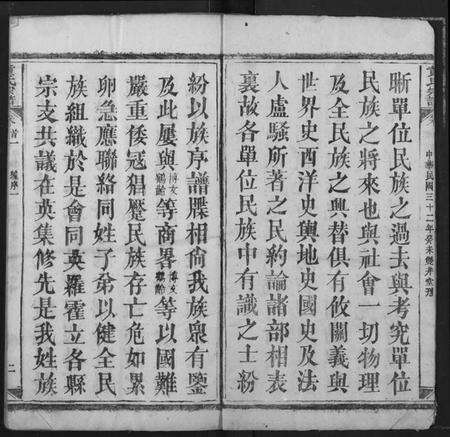 晰單位民族之過去與考究單位
民族之將來也與社會一切物理
及全民族之興替俱有攸關義與
世界史西洋史輿地史國史及法
人盧騷所著之民約論諸部相表
裏故各單位民族中有識之士紛
中華民國三十二年癸未
紛以族序譜牒相尚我族衆有鑒
及此屢與博文鶴齡等商畧博文鶴齡等以國難
嚴重倭寇猖蹷民族存亡危如累
卵急應聯絡同姓子弟以健全民
族組織於是會同英羅霍立各縣
宗支共議在英集修先是我姓族
卷首一
序一
二